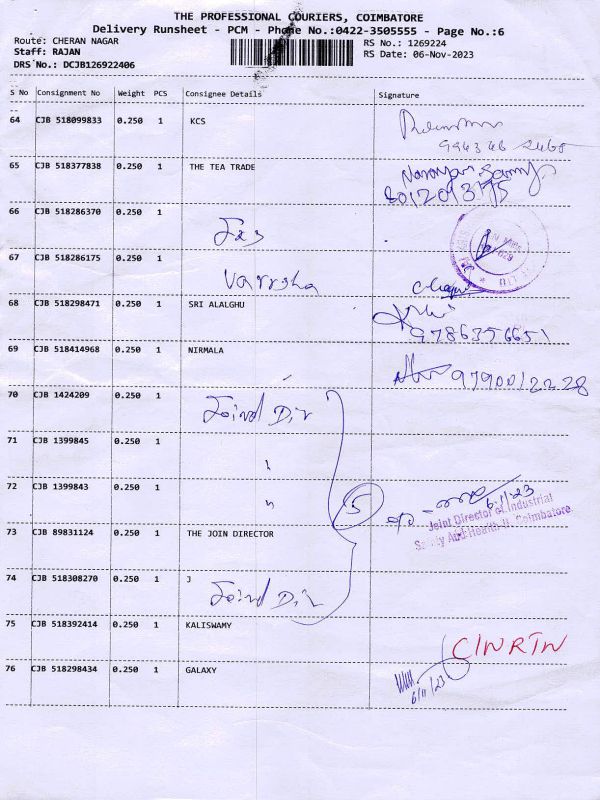 THE PROFESSIONAL COURIERS, COIMBATORE
Delivery Runsheet - PCM - Phone No.:0422-3505555 - Page No.:6
Route: CHERAN NAGAR
RS No.: 1269224
Staff: RAJAN
RS Date: 06-Nov-2023
DRS No.: DCJB126922406
S No Consignment No Weight PCS Consignee Details Signature
64 CJB 518099833 0.250 1 KCS
65 CJB 518377838 0.250 1 THE TEA TRADE
Narayan Samy
8012093175
66 CJB 518286370 0.250 1
67 CJB 518286175 0.250 1
Varsha
68 CJB 518298471 0.250 1 SRI ALALGHU
9786356651
69 CJB 518414968 0.250 1 NIRMALA
9790012228
70 CJB 1424209 0.250 1 Joind Dir
71 CJB 1399845 0.250 1 "
72 CJB 1399843 0.250 1 "
5
6/11/23
Joint Director of Industrial
Safety And Health-II, Coimbatore
73 CJB 89831124 0.250 1 THE JOIN DIRECTOR
74 CJB 518308270 0.250 1 J
Joind Dir
75 CJB 518392414 0.250 1 KALISWAMY
C/N RTN
76 CJB 518298434 0.250 1 GALAXY
6/11/23